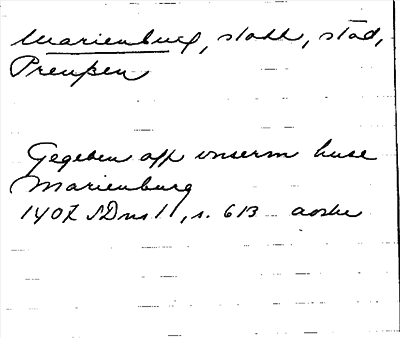 Marienburg, stadt, städ,
Preußen
Gegeben off unserm huse
Marienburg
1407 SDns 11, s. 613